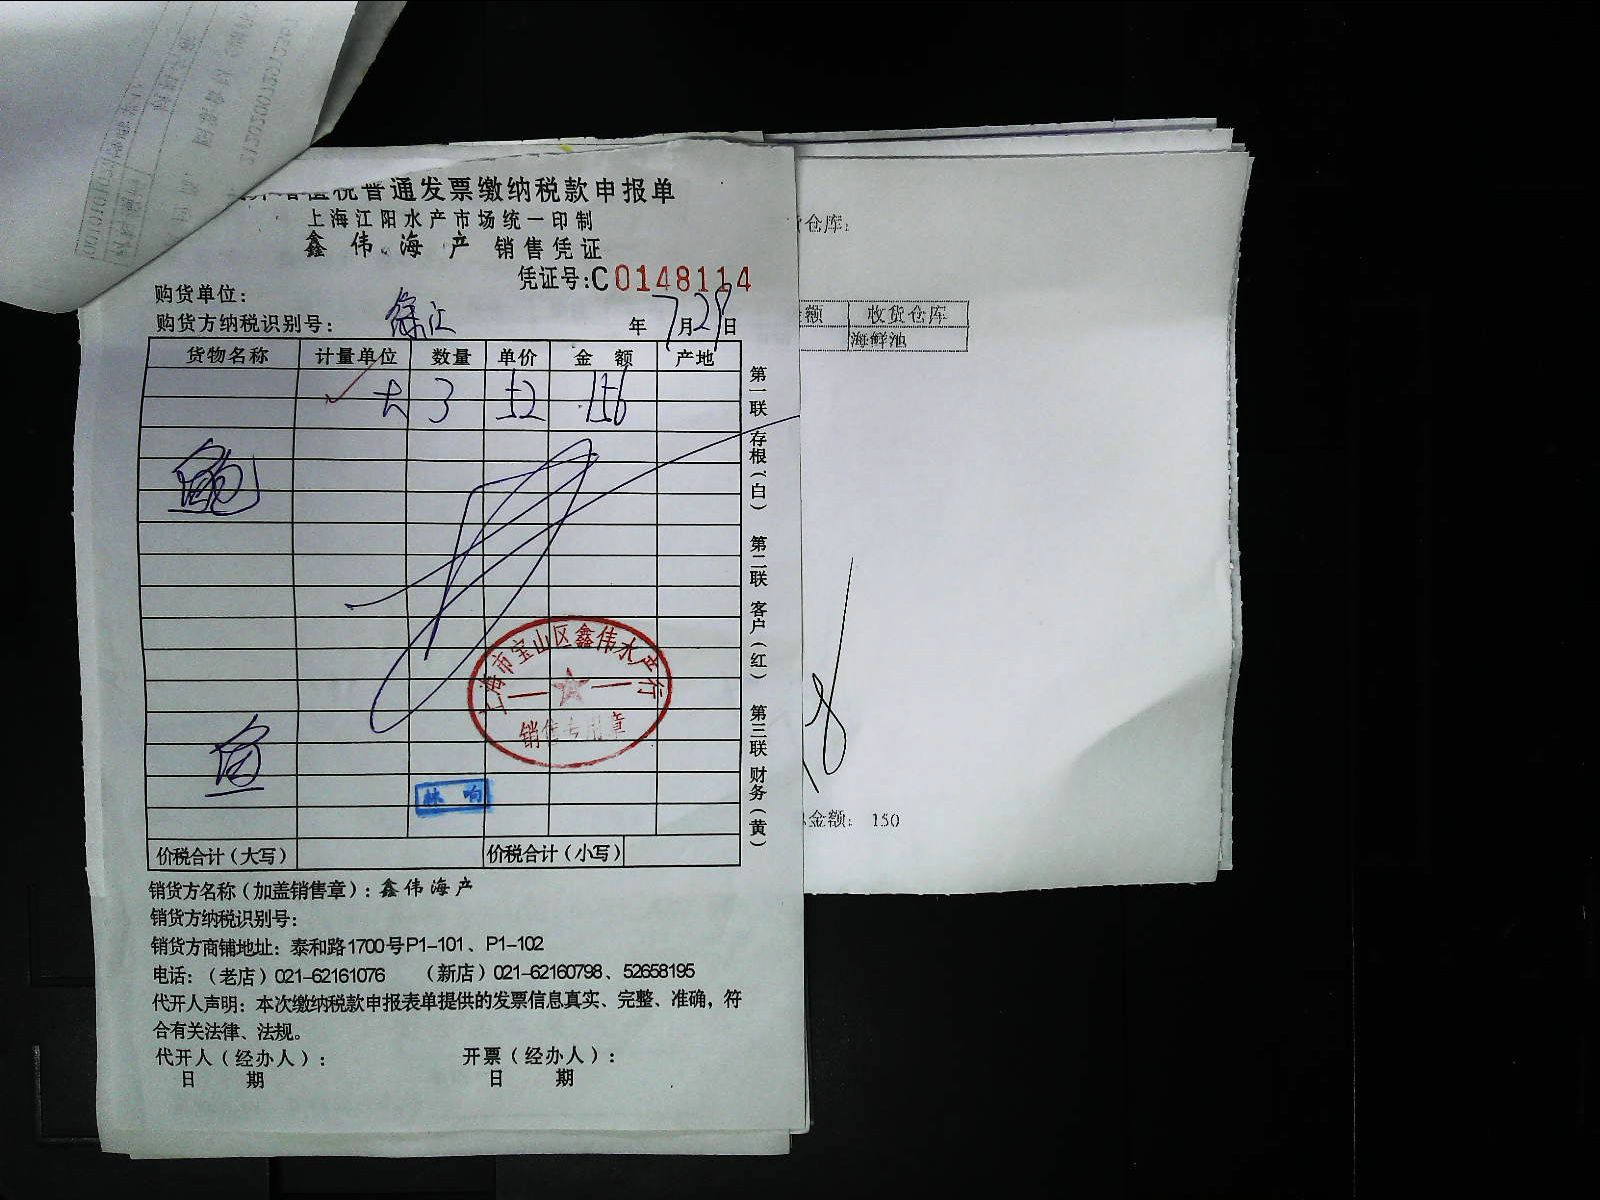 增值税普通发票缴纳税款申报单
上海江阳水产市场统一印制
鑫伟海产 销售凭证
凭证号:C0148114
购货单位:
购货方纳税识别号:
年7月29日
货物名称 计量单位 数量 单价 金额 产地
大 3 52 156
鲍
鱼
第一联 存根(白) 第二联 客户(红) 第三联 财务(黄)
上海市宝山区鑫伟水产行
销售专用章
林响
价税合计(大写) 价税合计(小写)
销货方名称(加盖销售章):鑫伟海产
销货方纳税识别号:
销货方商铺地址:泰和路1700号P1-101、P1-102
电话:(老店)021-62161076 (新店)021-62160798、52658195
代开人声明:本次缴纳税款申报表单提供的发票信息真实、完整、准确,符
合有关法律、法规。
代开人(经办人): 开票(经办人):
日期 日期
仓库:
额 收货仓库
海鲜池
金额: 150